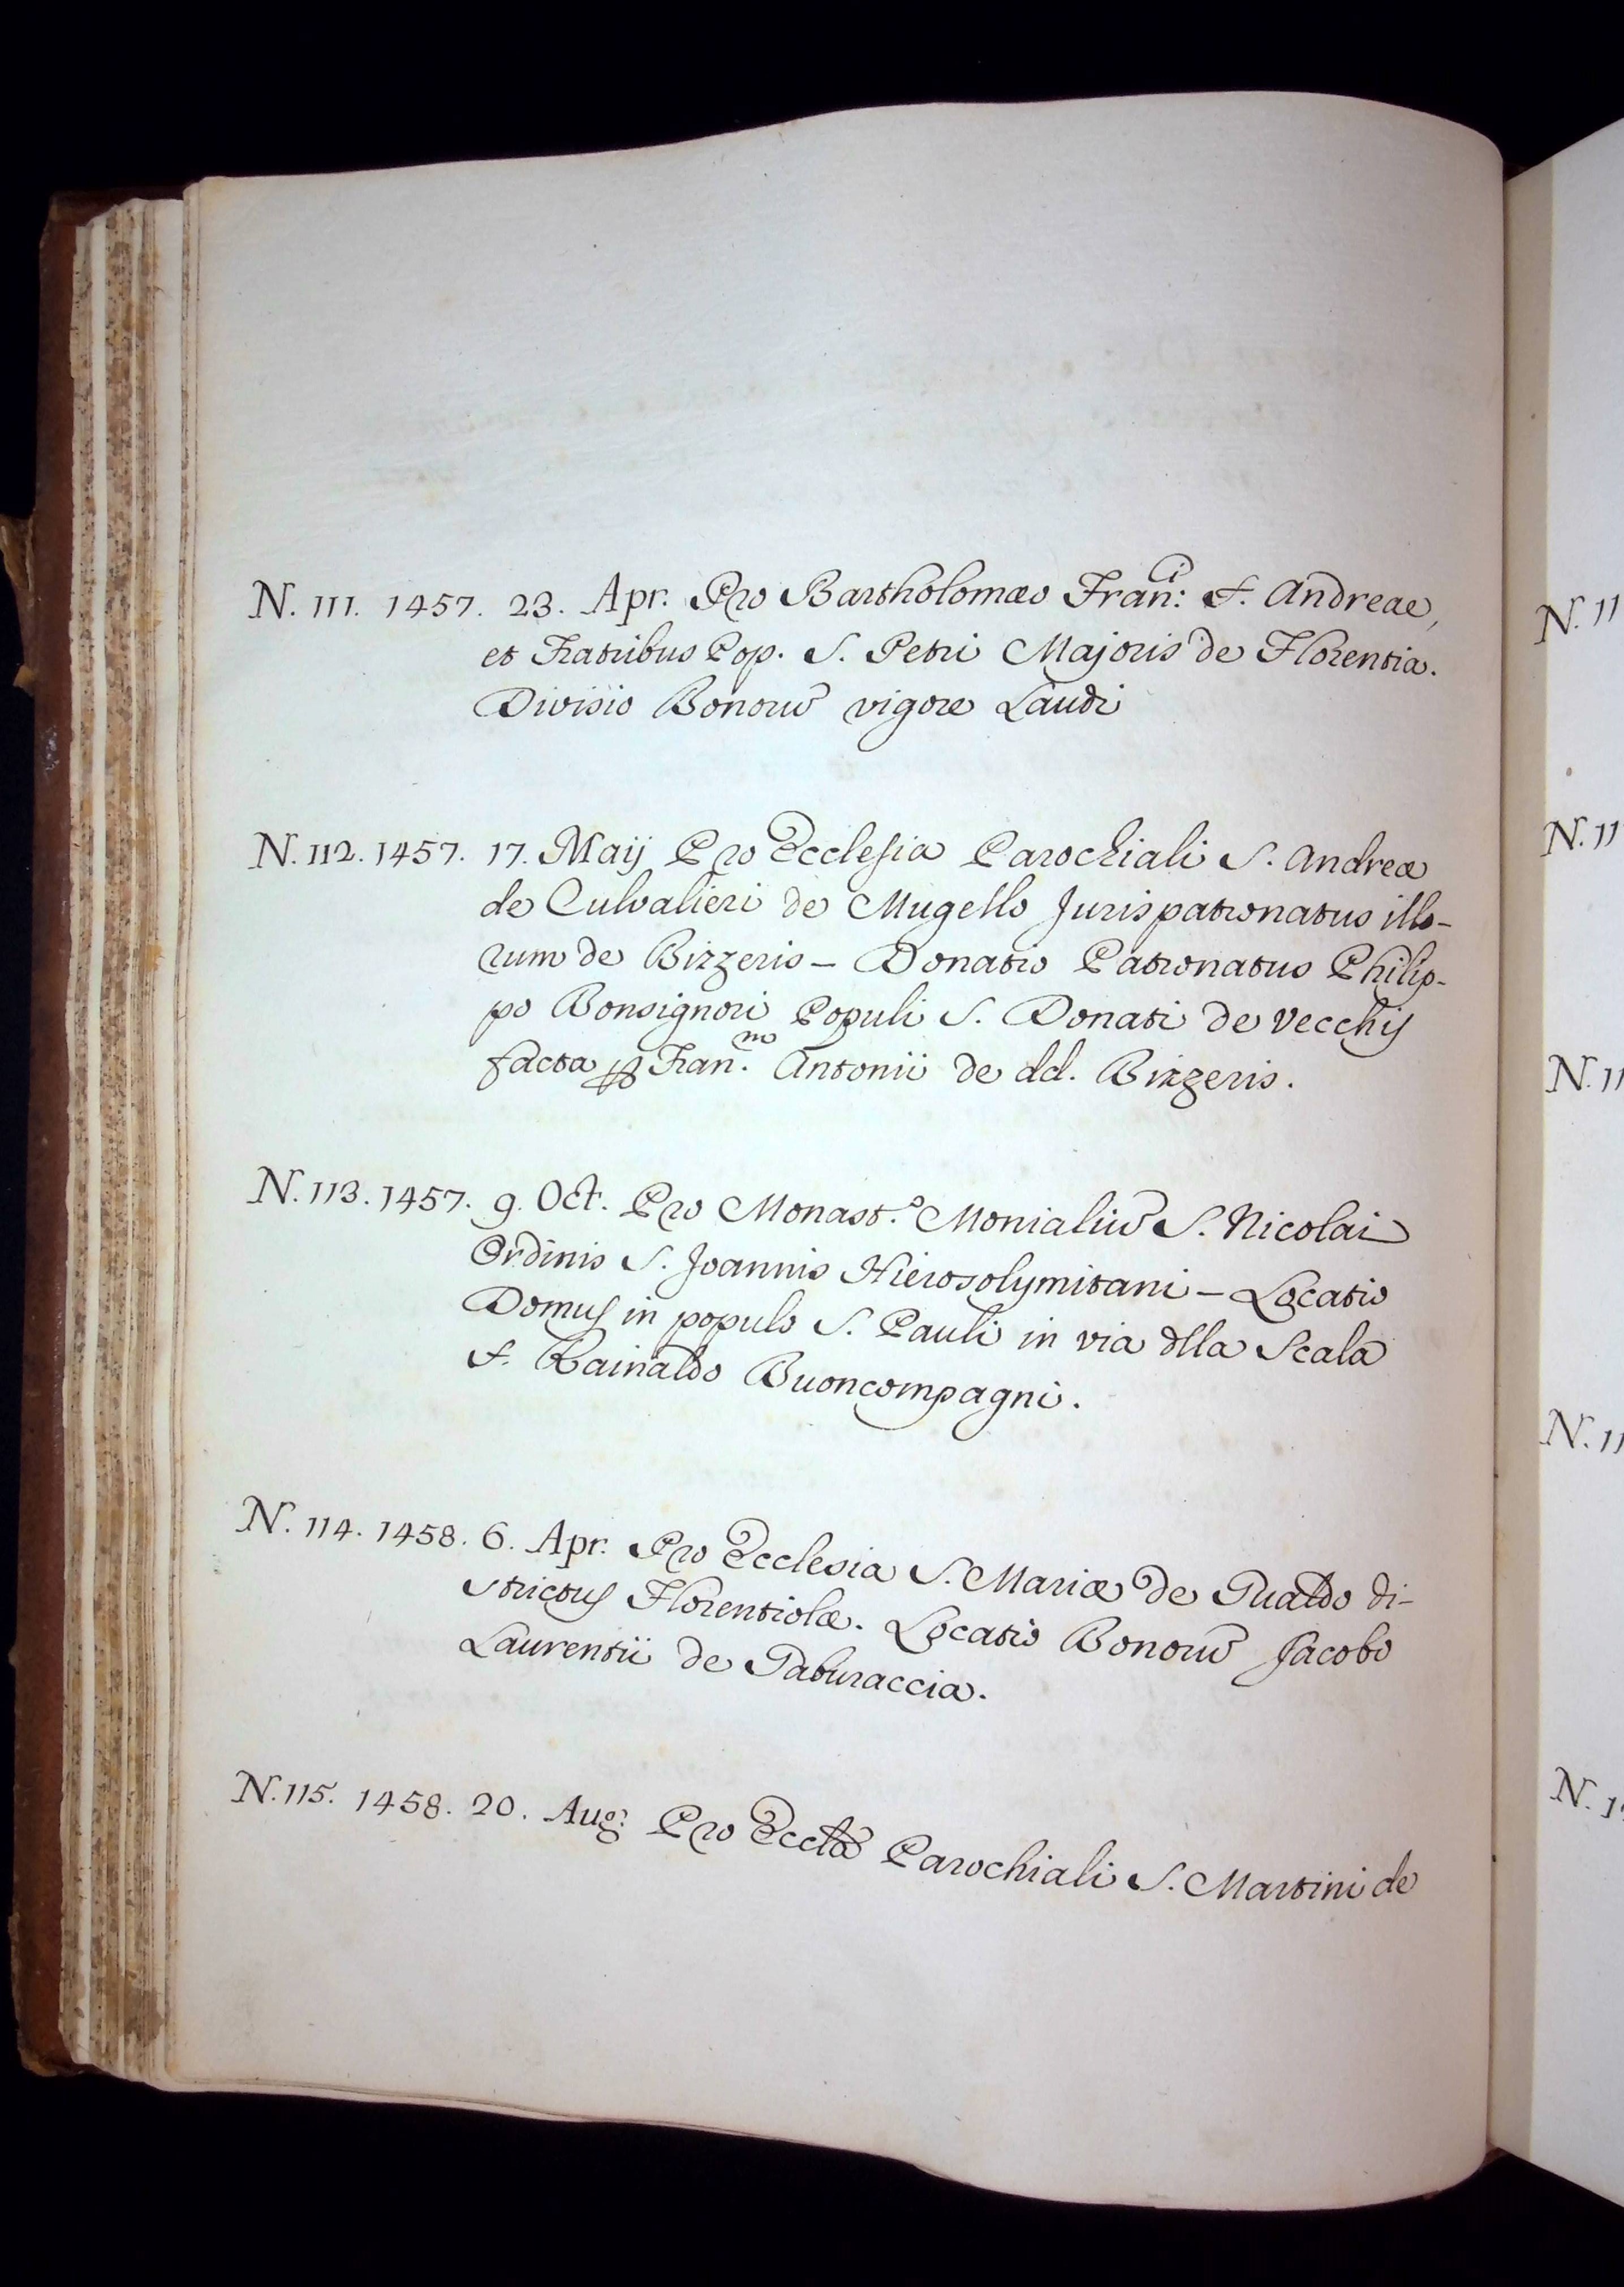 N. 111. 1457. 23. Apr. Pro Bartholomæo Fran:ci S. Andreae,
et Fratribus Pop. S. Petri Majoris de Florentia.
Divisio Bonorũ vigore Laudi
N. 112. 1457. 17. Maij Pro Ecclesia Parochiali S. Andreæ
de Culvalieri de Mugello Jurispatronatus illo-
rum de Bizzeris – Donatio Patronatus Philip-
po Bonsignori Populi S. Donati de Vecchis
facta ꝑ Fran.m Antonii de dd. Bizzeris.
N. 113. 1457. 9. Oct. Pro Monast.o Monialiũ S. Nicolai
Ordinis S. Joannis Hierosolymitani – Locatio
Domus in populo S. Pauli in via dlla Scala
S. Rainaldo Buoncompagni.
N. 114. 1458. 6. Apr. Pro Ecclesia S. Mariæ de Gualdo di-
strictus Florentiolæ. Locatio Bonorũ Jacobo
Laurentii de Gaburaccia.
N. 115. 1458. 20. Aug: Pro Eccla Parochiali S. Martini de
N. 11
N. 11
N. 11
N. 11
N. 1